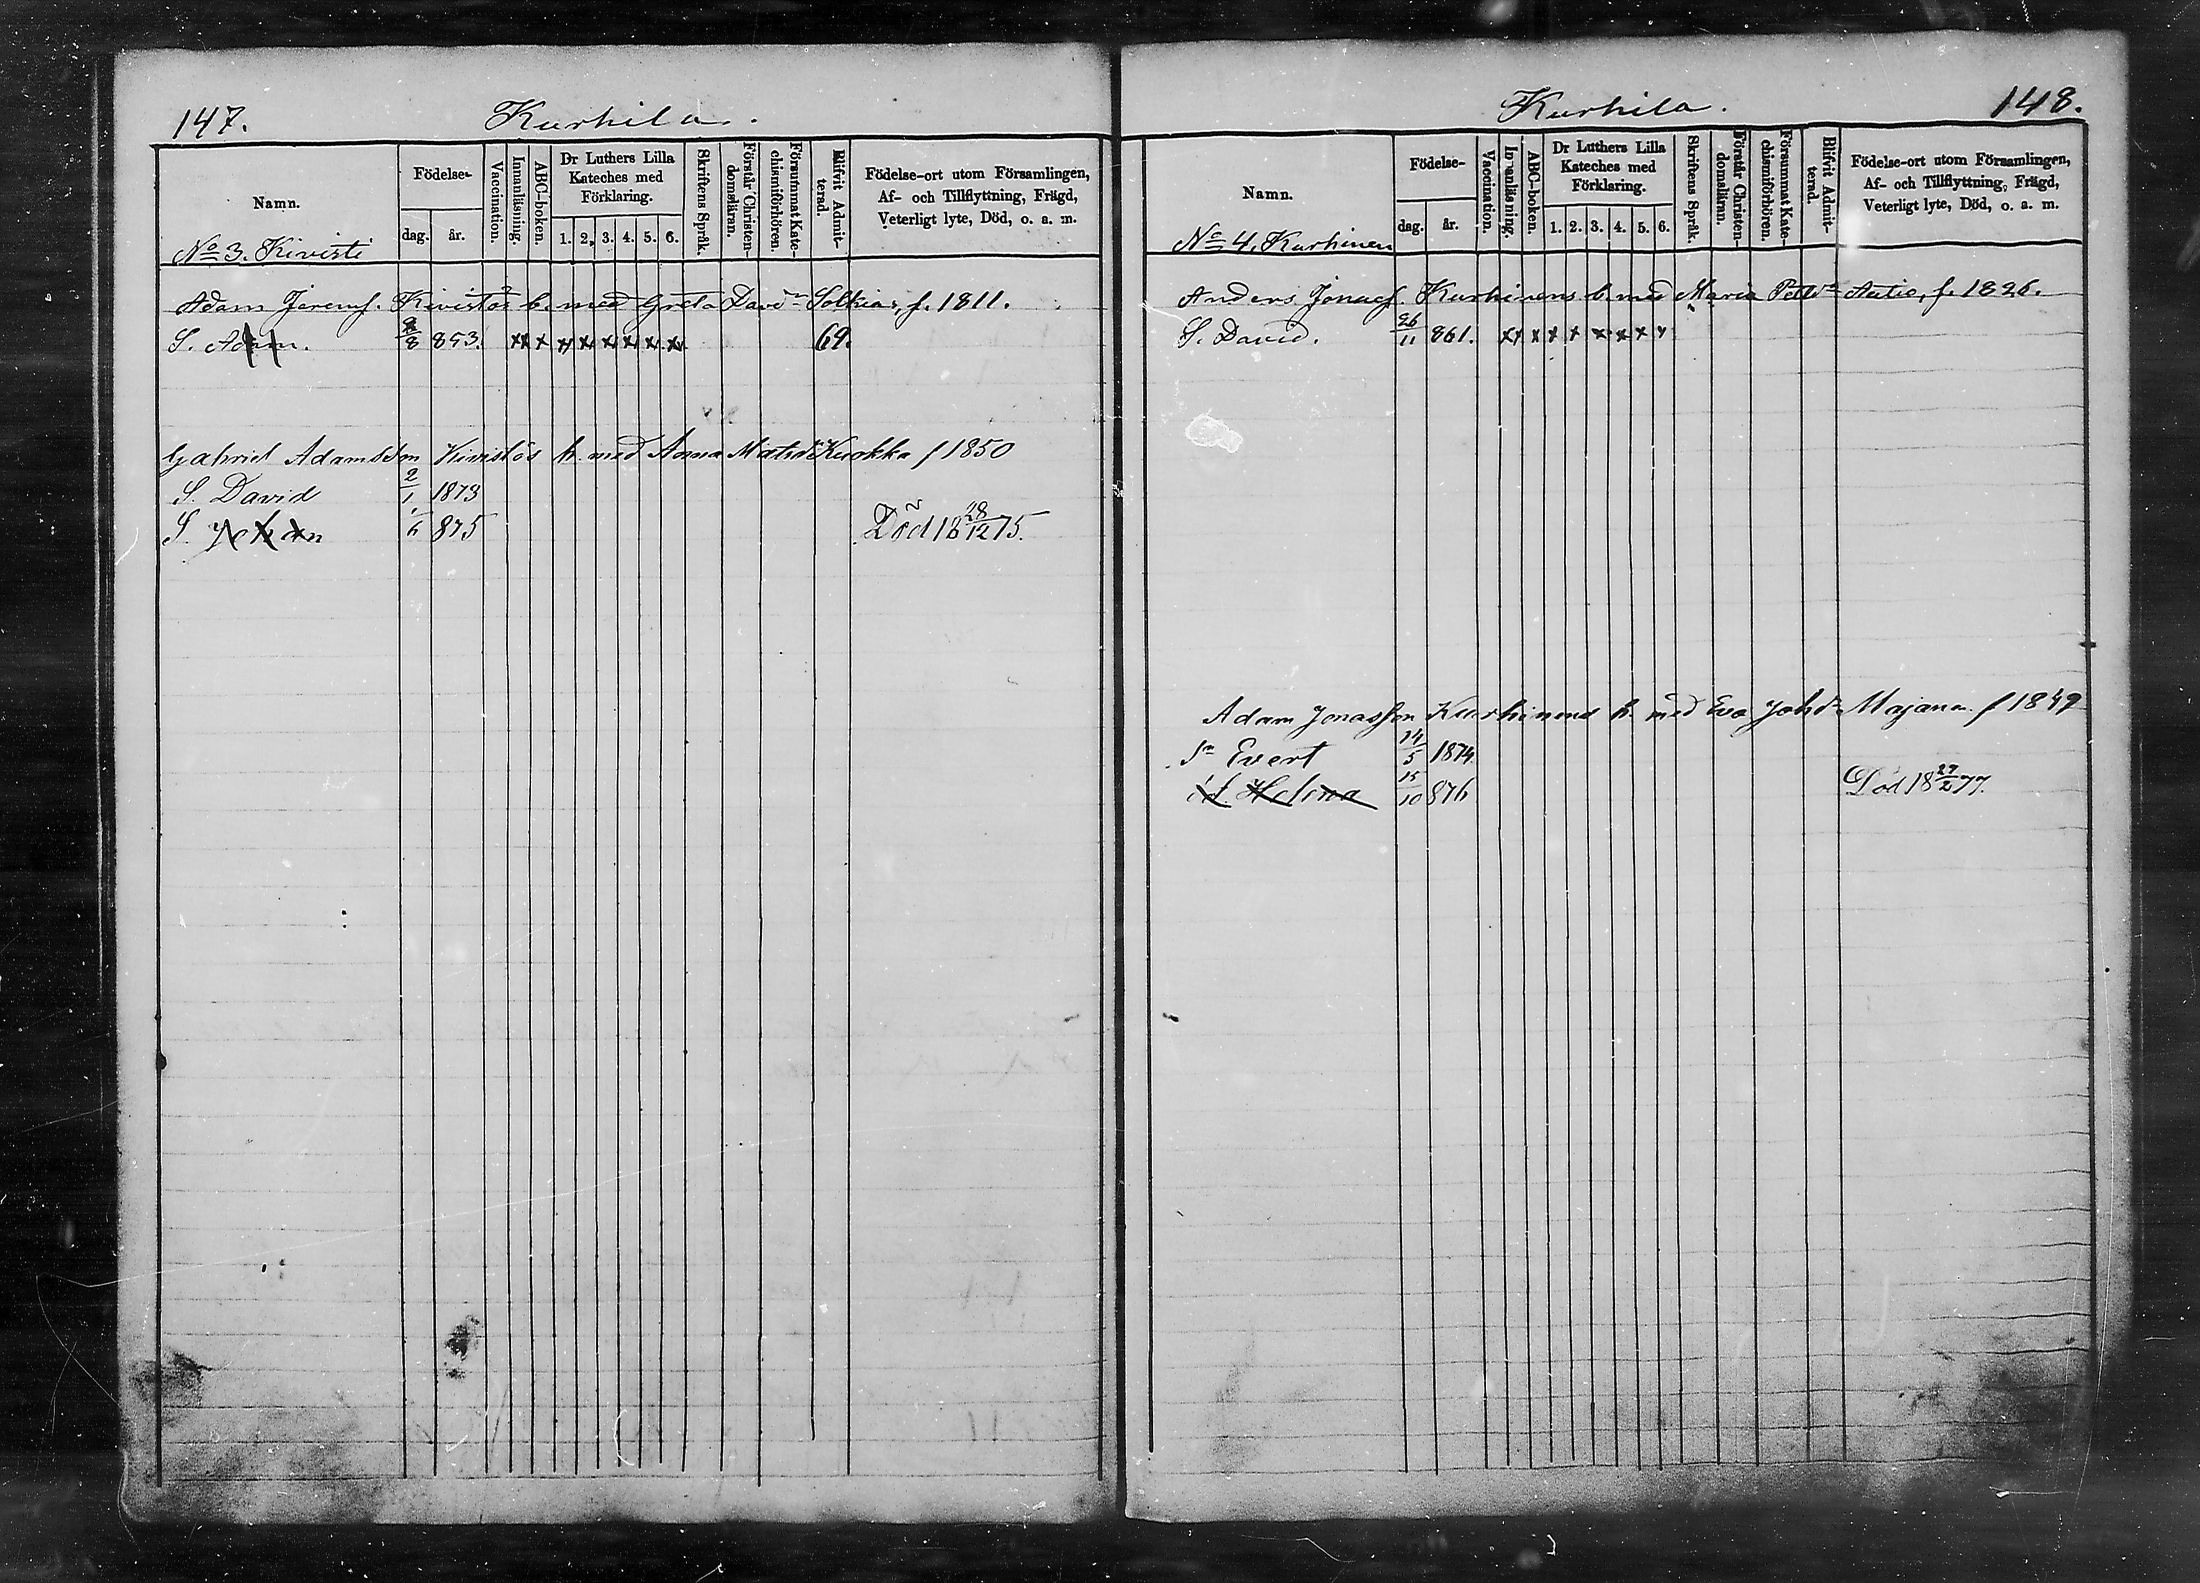 147.
Kurhila.
Namn.
Födelse-
dag.
år.
Vaccination.
Innanläsning.
ABC-boken.
Dr Luthers Lilla
Kateches med
Förklaring.
1. 2. 3. 4. 5. 6.
Skriftens Språk.
Förstår Christen-
domsläran.
Försummat Kate-
chismiförhören.
Blifvit Admit-
terad.
Födelse-ort utom Församlingen,
Af- och Tillflyttning, Frägd,
Veterligt lyte, Död, o. a. m.
No 3. Kivisti
Adam Jeremf. Kivistös b. med Greta Davdr f. 1811.
S. Adam. 8 853. xx x x x x x x x 69.
Gabriel Adamsson Kivistös h. med Anna Kuokka f 1850
S. David 2/1 1873
S. Johan /6 875 Död 18 28/12 75.
Kurhila.
148.
Namn.
Födelse-
dag.
år.
Vaccination.
Innanläsning.
ABC-boken.
Dr Luthers Lilla
Kateches med
Förklaring.
1. 2. 3. 4. 5. 6.
Skriftens Språk.
Förstår Christen-
domsläran.
Försummat Kate-
chismiförhören.
Blifvit Admit-
terad.
Födelse-ort utom Församlingen,
Af- och Tillflyttning, Frägd,
Veterligt lyte, Död, o. a. m.
No 4. Kurhinen
Anders Jonasf. Kurhinens b. med Maria Pettdr Autio, f. 1826.
S. David. 26/11 861. xx x x x x x x x
Adam Jonasson Kurhinens h. med Eva Johdr Majanen f 1849
Sn Evert 14/5 1874.
d. Helena 15/10 876 Död 18 27/2 77.